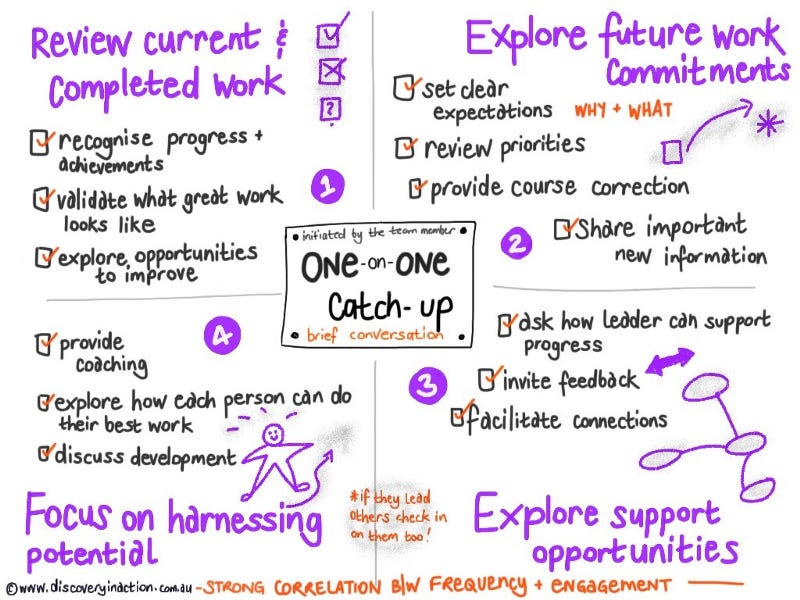 Review current &
Completed Work
?
recognise progress +
achievements
validate what great work
looks like
explore opportunities
to improve
1
Explore future work
Commitments
set clear
expectations WHY + WHAT
review priorities
provide course correction
2
Share important
new information
initiated by the team member
ONE-on-ONE
Catch-up
brief conversation
3
ask how leader can support
progress
invite feedback
facilitate connections
Explore support
opportunities
4
provide
coaching
explore how each person can do
their best work
discuss development
Focus on harnessing
potential
*if they lead
others check in
on them too!
©www.discoveryinaction.com.au - STRONG CORRELATION B/W FREQUENCY + ENGAGEMENT